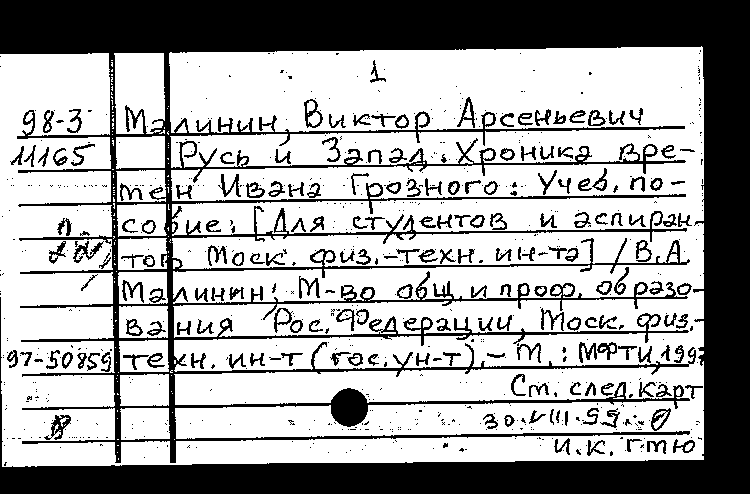 1
98-3 Малинин, Виктор Арсеньевич
11165 Русь и Запад. Хроника вре-
мен Ивана Грозного: Учеб. по-
собие: [Для студентов и аспиран-
тов Моск. физ.-техн. ин-та] / В.А.
Малинин; М-во общ. и проф. образо-
вания Рос. Федерации, Моск. физ.-
97-50859 техн. ин-т (гос. ун-т). - М.: МФТИ, 1997
См. след. карт
30.VIII.99.
И.К. ГМЮ